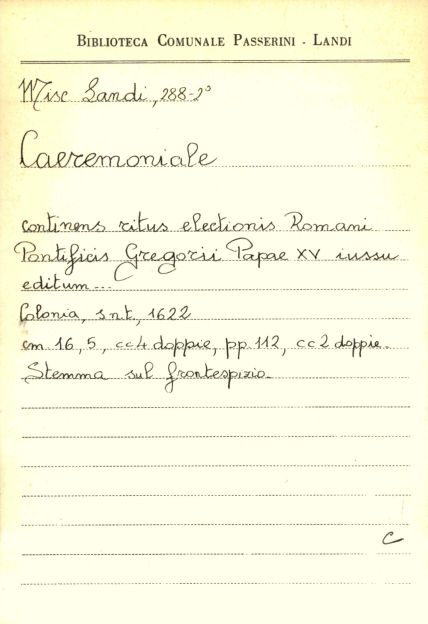 BIBLIOTECA COMUNALE PASSERINI - LANDI
Misc Landi, 288-2°
Caeremoniale
continens ritus electionis Romani
Pontificis Gregorii Papae XV iussu
editum...
Colonia, snt, 1622
cm 16,5, cc4 doppie, pp 112, cc2 doppie.
Stemma sul frontespizio.
C